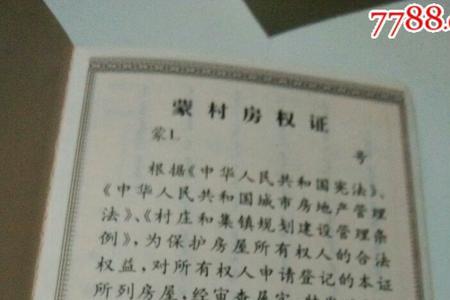 7788.c
蒙村房权证
蒙L 号
根据《中华人民共和国宪法》、
《中华人民共和国城市房地产管理
法》、《村庄和集镇规划建设管理条
例》,为保护房屋所有权人的合法
权益,对所有权人申请登记的本证
所列房屋,经审查属实